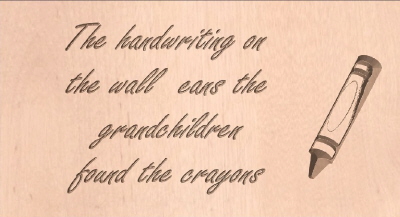 The handwriting on
the wall eans the
grandchildren
found the crayons